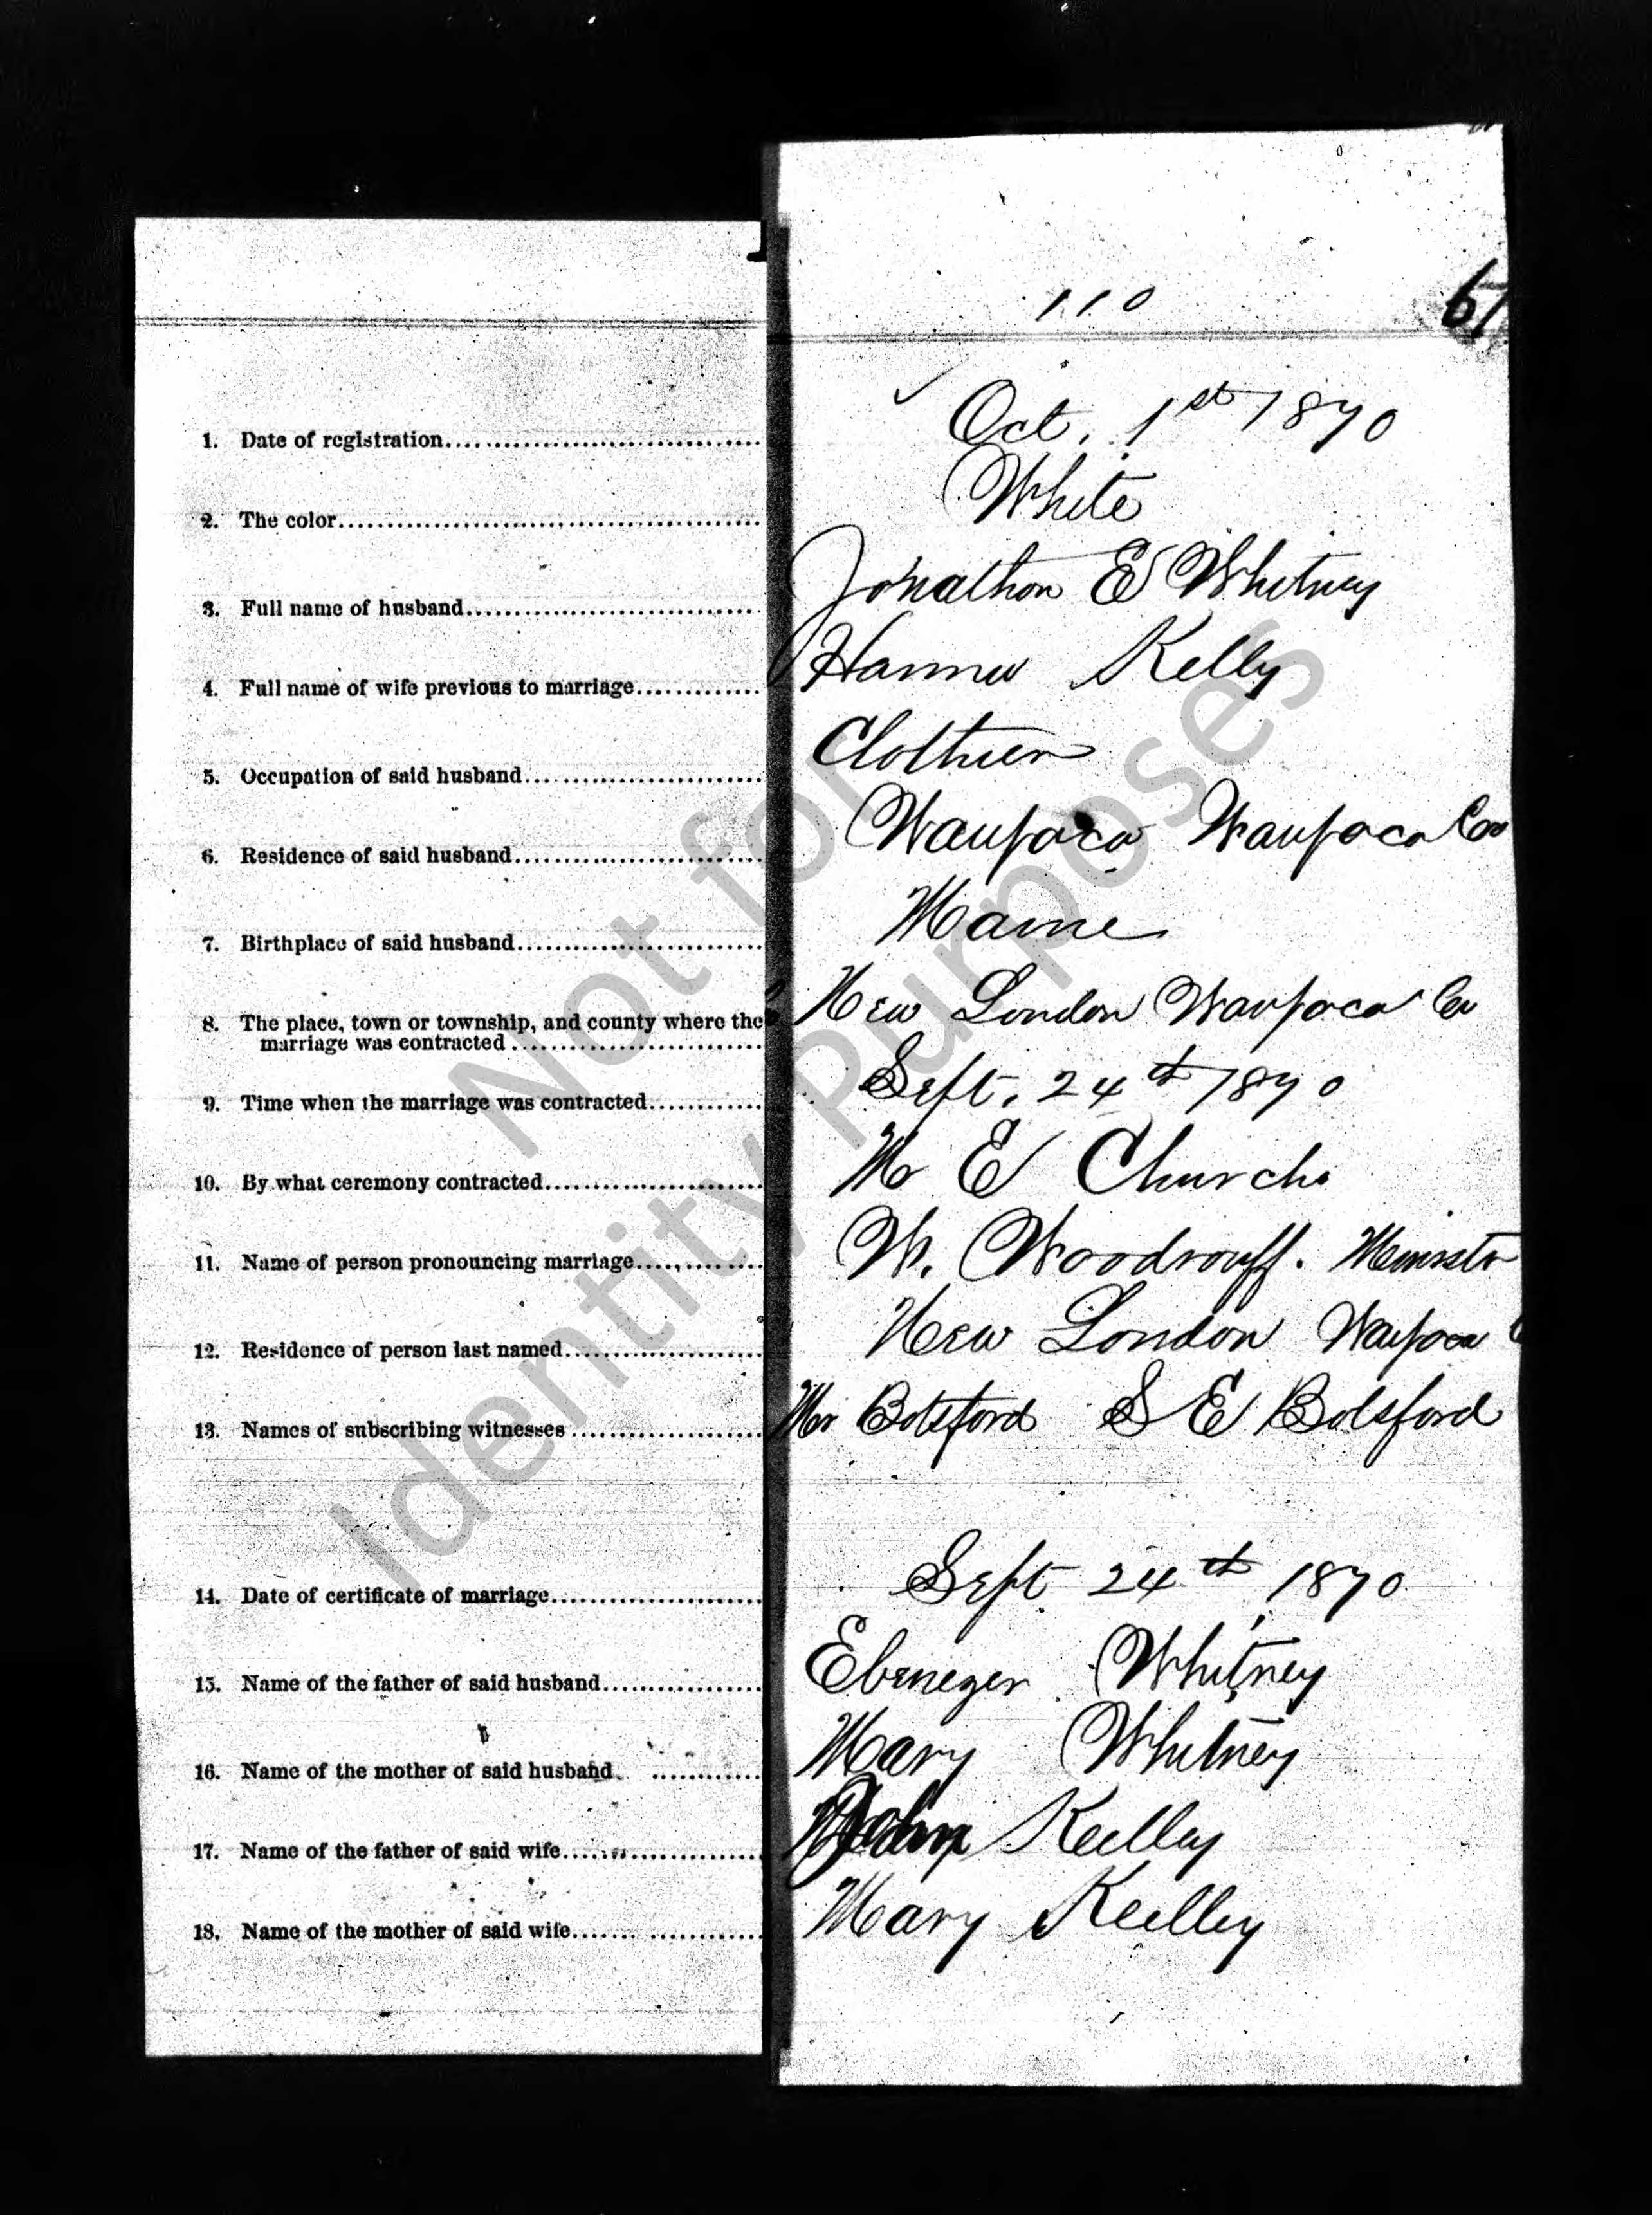 110
61
1. Date of registration
Oct. 1st 1870
2. The color
White
3. Full name of husband
Jonathon E Whitney
4. Full name of wife previous to marriage
Kelly
5. Occupation of said husband
Clothier
6. Residence of said husband
Waupaca Waupaca Co
7. Birthplace of said husband
Maine
8. The place, town or township, and county where the
marriage was contracted
New London Waupaca Co
9. Time when the marriage was contracted
Sept. 24th 1870
10. By what ceremony contracted
M E Church
11. Name of person pronouncing marriage
W. Woodrouff. Minister
12. Residence of person last named
New London Waupaca
13. Names of subscribing witnesses
Botsford S E Botsford
14. Date of certificate of marriage
Sept 24th 1870
15. Name of the father of said husband
Ebenezer Whitney
16. Name of the mother of said husband
Mary Whitney
17. Name of the father of said wife
John Keilley
18. Name of the mother of said wife
Mary Keilley
Not for
Identity Purposes